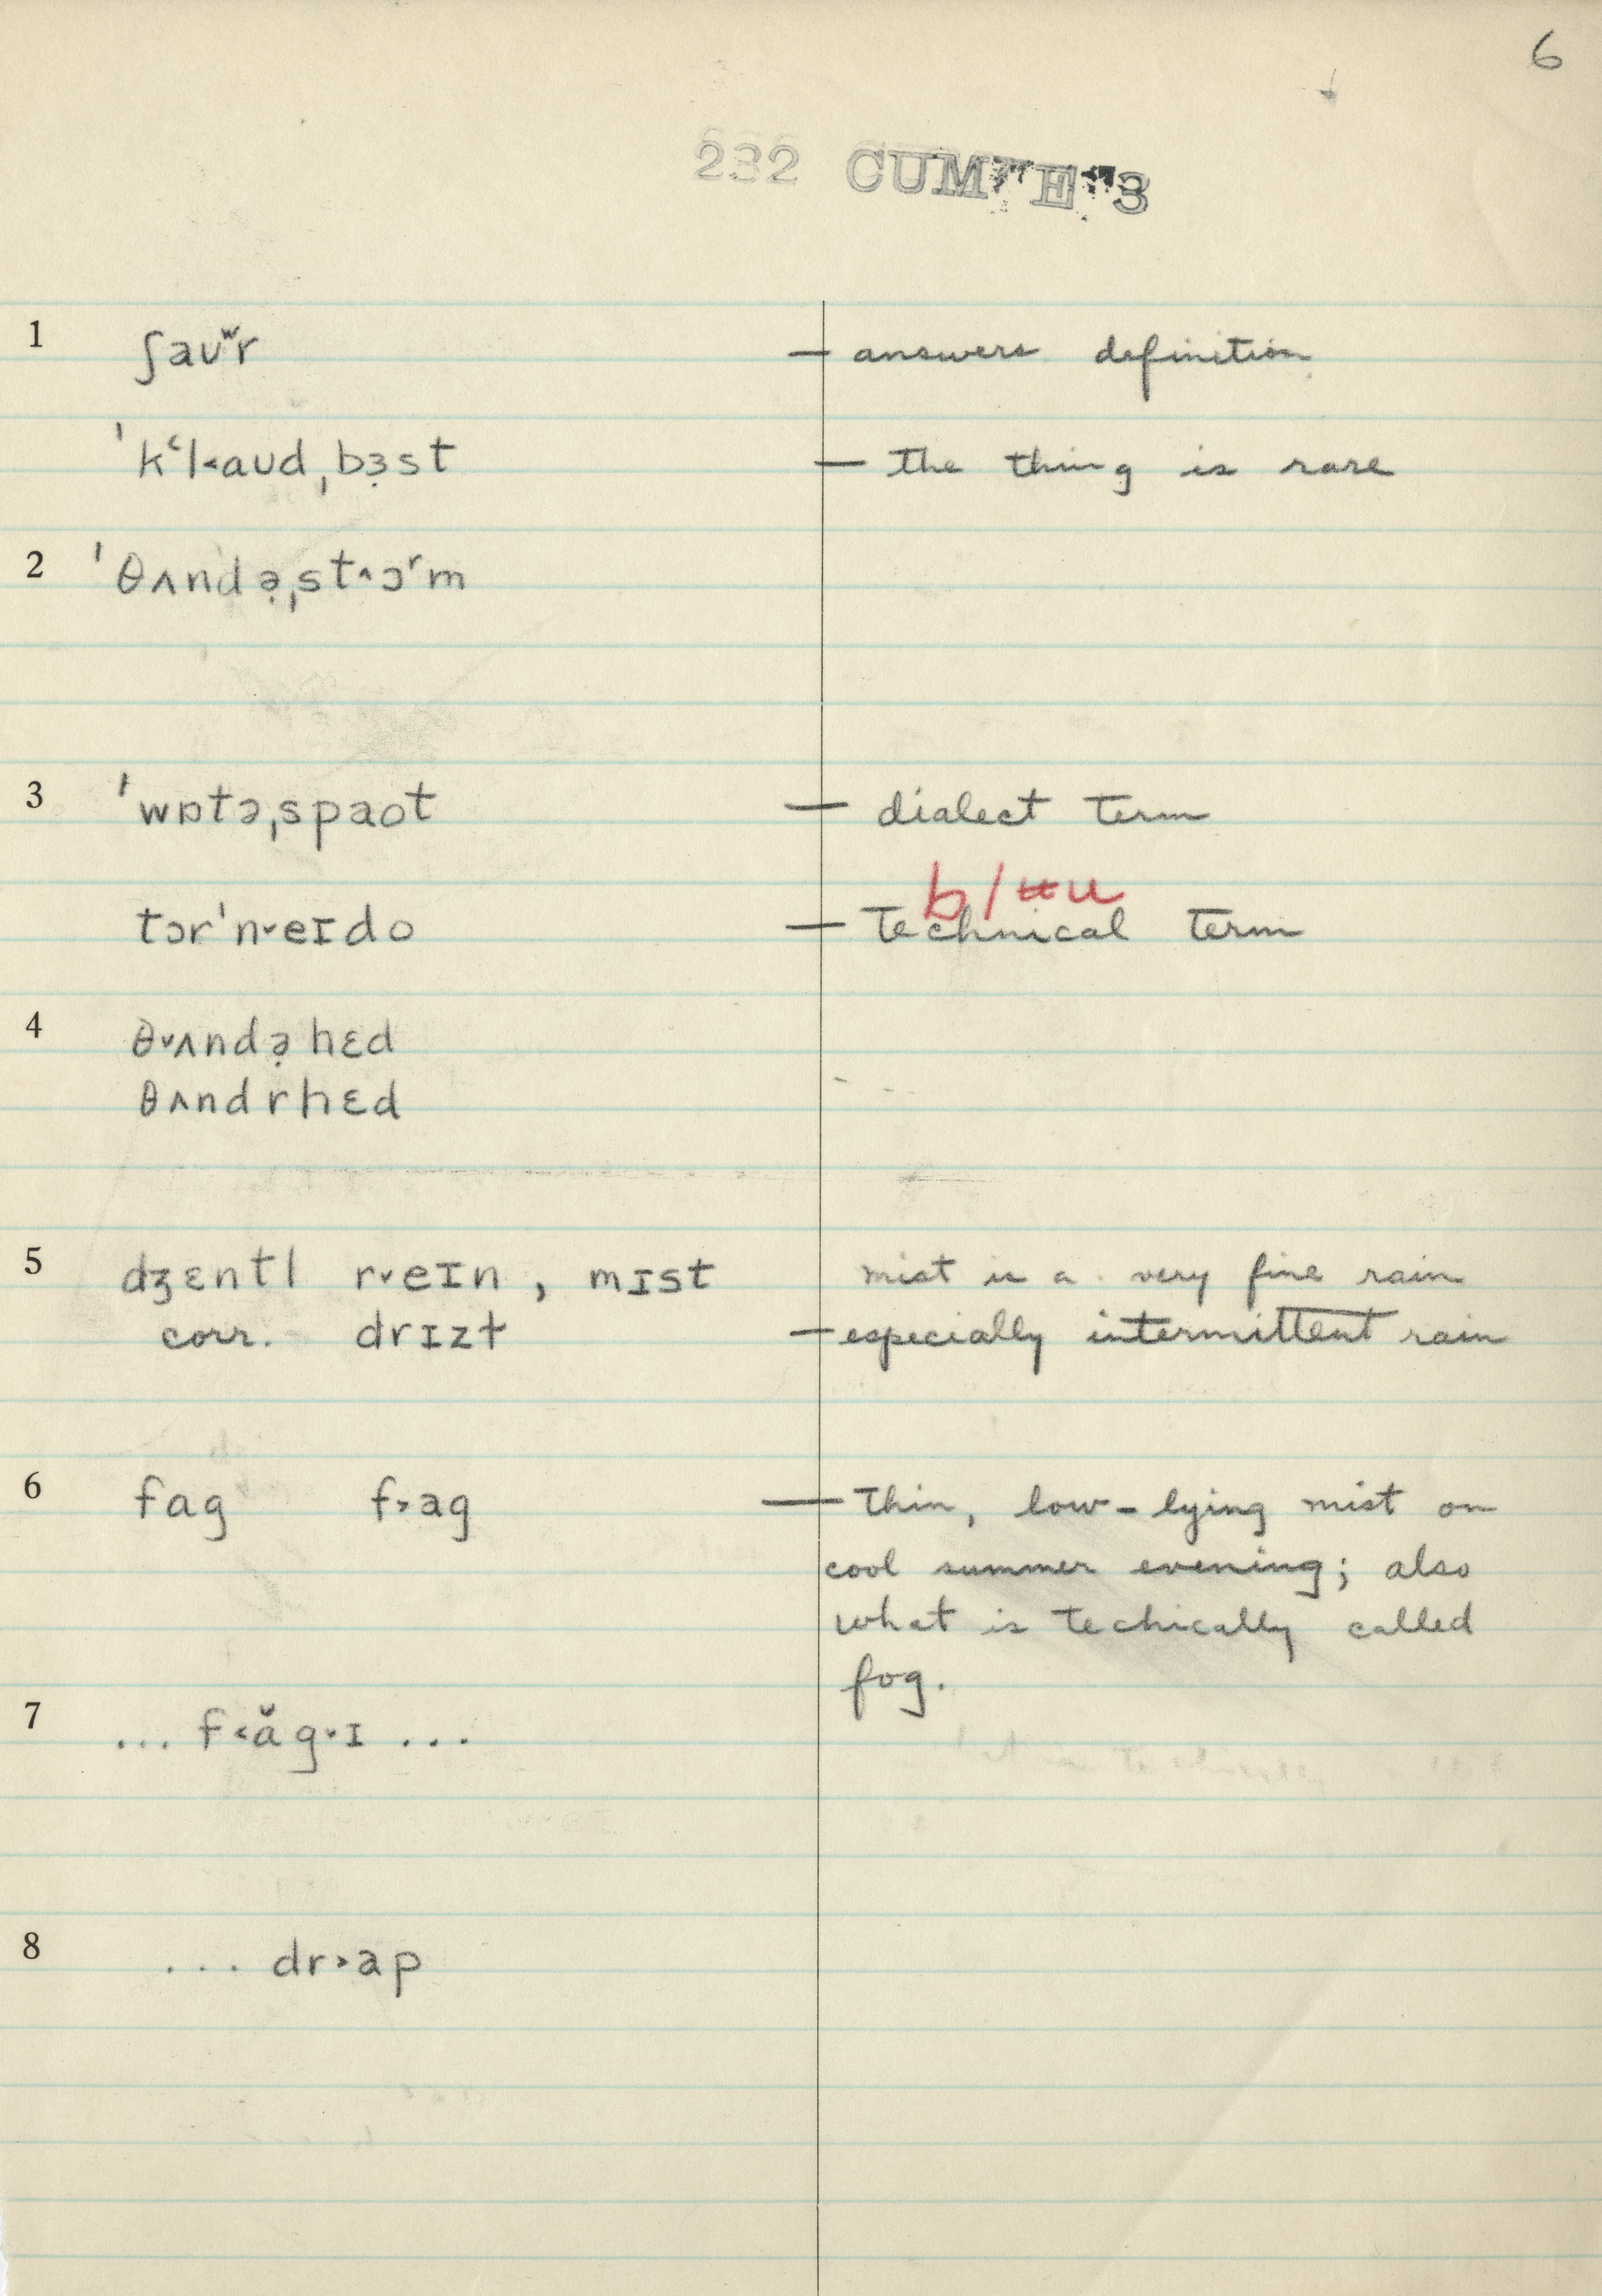 6
232 CUM "E" 3
1 ʃaʊʷ̆r — answers definition
ˈkʻl˂aʊd ˌbɜ̣st — the thing is rare
2 ˈθʌndə̣ˌst˄ɔʳm
3 ˈwɒtəˌspaot — dialect term
b/ʉu
tɔrˈn˅eɪdo — technical term
4 θ˅ʌndə̣ hɛd
θʌndrhɛd
5 dʒɛntl r˅eɪn, mɪst mist is a very fine rain
corr. drɪzt — especially intermittent rain
6 fag f˃ag — thin, low-lying mist on
cool summer evening; also
what is techically called
fog.
7 ... f˂ăg˅ɪ ...
8 ... dr˃ap